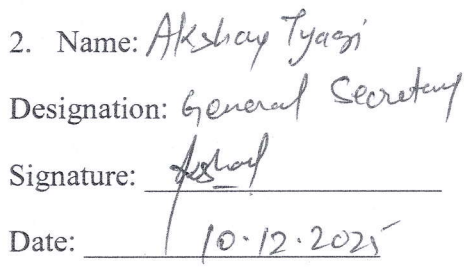 2. Name: Akshay Tyagi
Designation: General Secretary
Signature: Akshay
Date: 10.12.2025